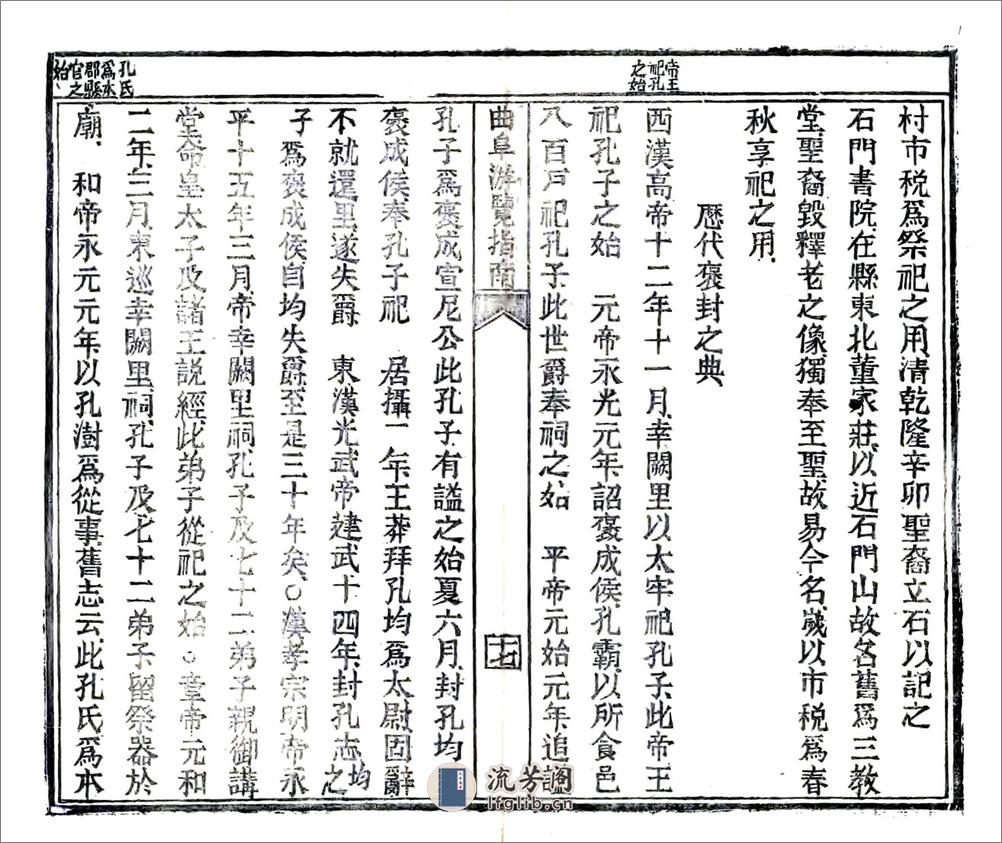 村市税爲祭祀之用清乾隆辛卯聖裔立石以記之
石門書院在縣東北董家莊以近石門山故名舊爲三教
堂聖裔毀釋老之像獨奉至聖故易今名歲以市税爲春
秋享祀之用
歷代褒封之典
帝王祀孔之始
西漢高帝十二年十一月幸闕里以太牢祀孔子此帝王
祀孔子之始 元帝永光元年詔褒成侯孔霸以所食邑
八百戸祀孔子此世爵奉祠之始 平帝元始元年追諡
曲阜游覽指南
十七
孔子爲褒成宣尼公此孔子有謚之始夏六月封孔均
褒成侯奉孔子祀 居攝一年王莽拜孔均爲太尉固辭
不就還里遂失爵 東漢光武帝建武十四年封孔志均之
子爲褒成侯自均失爵至是三十年矣○漢孝宗明帝永
平十五年三月帝幸闕里祠孔子及七十二弟子親御講
堂命皇太子及諸王説經此弟子從祀之始○章帝元和
二年三月東巡幸闕里祠孔子及七十二弟子留祭器於
廟 和帝永元元年以孔澍爲從事舊志云此孔氏爲本
孔氏爲本郡縣官之始
流芳閣
lfglib.cn